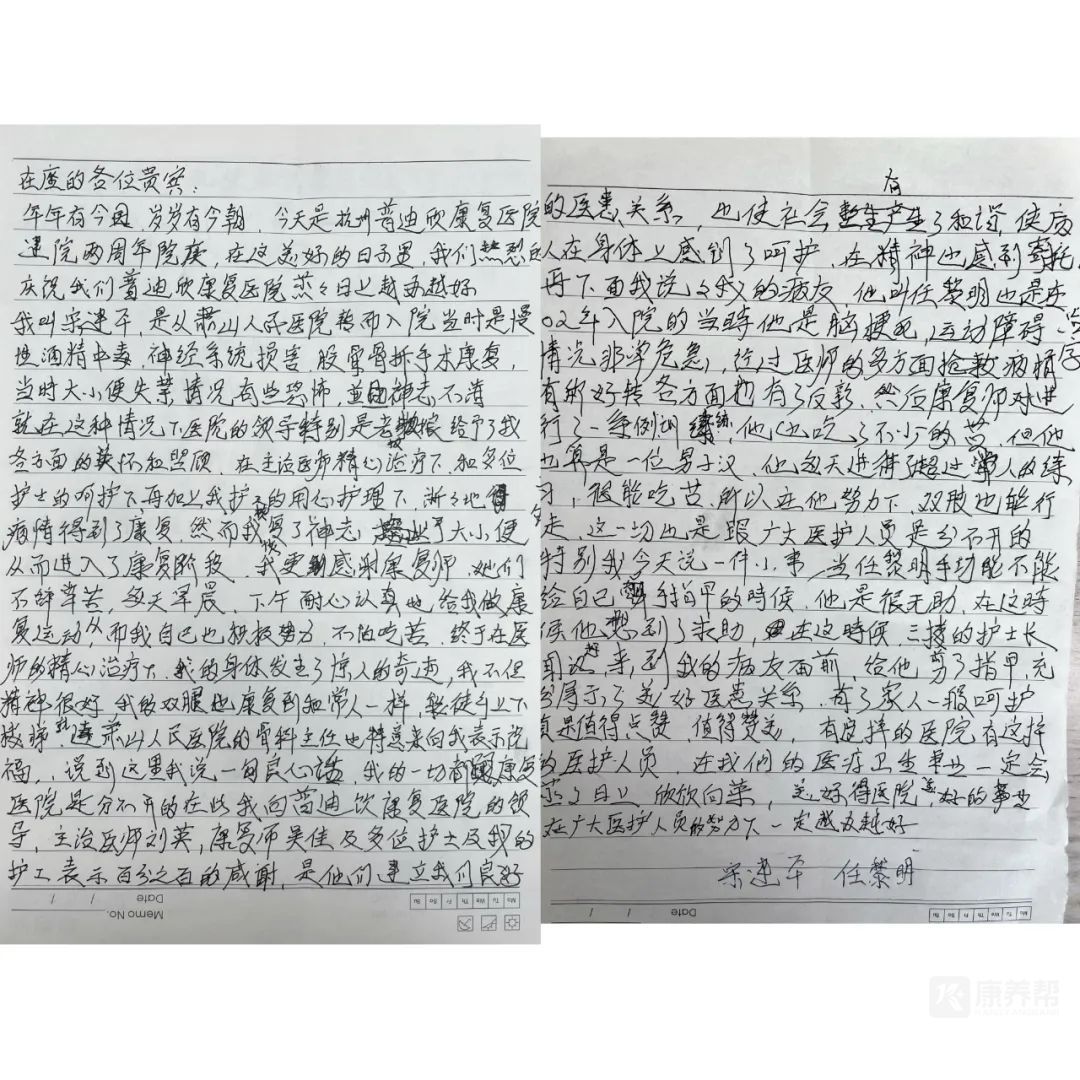 在座的各位贵宾：
年年有今日 岁岁有今朝 今天是杭州普迪欣康复医院
建院两周年院庆，在这美好的日子里，我们热烈的
庆祝我们普迪欣康复医院蒸々日上越办越好
我叫宋建平，是从萧山人民医院转而入院当时是慢
性酒精中毒，神经系统损害，股骨骨折手术康复，
当时大小便失禁 情况有些恐怖，并且神志不清
就在这种情况下医院的领导特别是老 给予了我
各方面的关怀和照顾，在主治医师精心治疗下 和多位
护士的呵护下再加上我护工的用心护理下，渐々地
病情得到了康复，然而我恢复了神志 了大小便
从而进入了康复阶段，我更感谢康复师，她们
不辞辛苦，每天早晨、下午耐心认真地给我做康
复运动从而我自己也积极努力，不怕吃苦，终于在医
师的精心治疗下 我的身体发生了惊人的奇迹，我不但
精神很好 我的双腿也康复到和常人一样，能徒手上下
楼梯，连萧山人民医院的骨科主任也特意来向我表示祝
福，说到这里我说一句良心话，我的一切 康复
医院是分不开的在此我向普迪饮康复医院的领
导，主治医师刘英，康复师吴佳及多位护士及我的
护工表示百分之百的感谢，是他们建立我们良好
Memo No.
Date / /
Mo Tu We Th Fr Sa Su
有
的医患关系，也使社会产生了和谐，使病
人在身体上感到了呵护，在精神也感到寄托，
再下面我说々我的病友，他叫任黎明也是在
02年入院的当時他是脑梗死，运动障碍
情况非常危急，经过医师的多方面抢救 病情
有所好转各方面也有了反影，然后康复师对进
行了一系例训练，他也吃了不少的苦，但他
也算是一位男子汉，他每天进行超过常人的练
习，很能吃苦，所以在他努力下，双肢也能行
走，这一切也是跟广大医护人员是分不开的
特别我今天说一件小事，当任黎明手功能不能
给自己剪手指甲的時候，他是很无助，在这時
候他想到了求助，在这時候，三楼的护士长
来到我的病友面前，给他剪了指甲，充
分展示了美好医患关系，有了家人一般呵护
真是值得点赞，值得赞美，有这样的医院有这样
的医护人员，在我们的医疗卫生事业一定会
蒸々日上 欣欣向荣，美好得医院，美好的事业
在广大医护人员的努力下一定越办越好
宋建平 任黎明
Date / /
Mo Tu We Th Fr Sa Su
康养帮
KANGYANGBANG